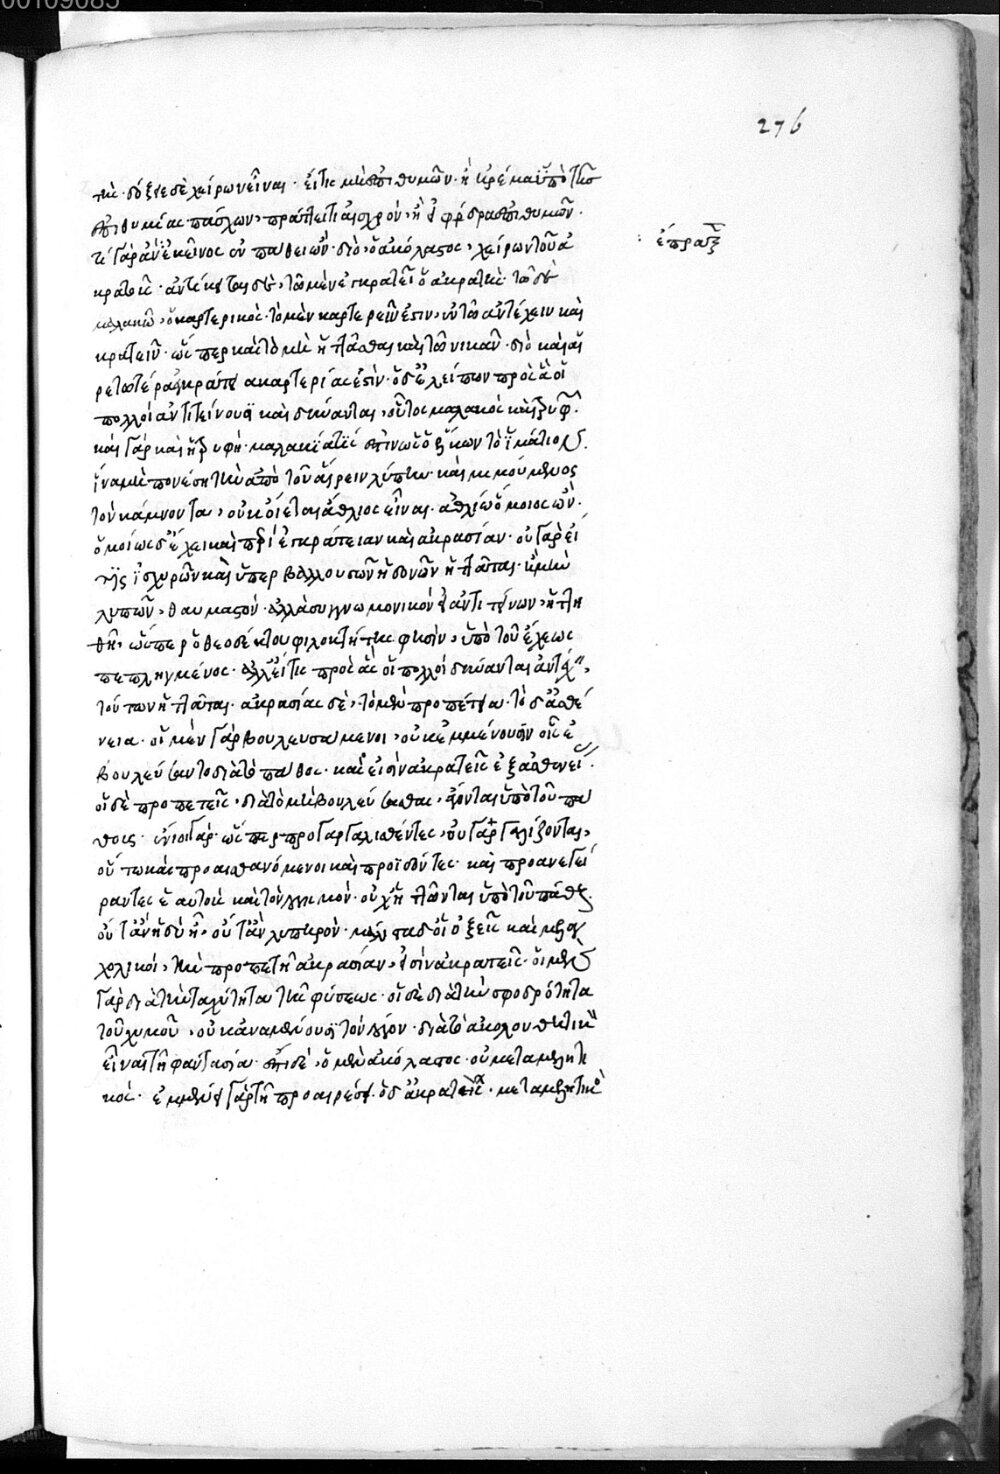 276
τίς· δόξειε δὲ χείρων εἶναι· εἴ τις μὴ ἐπιθυμῶν· ἢ ἠρέμα ὑπὸ τῆς
ἐπιθυμίας πάσχων, πράττει τι αἰσχρὸν, ἢ ὁ σφόδρα ἐπιθυμῶν.
τί γὰρ ἂν ἐκεῖνος ἐν πάθει ὤν· διὸ, ὁ ἀκόλαστος, χείρων τοῦ ἀ
: ἔπραξε
κρατοῦς· ἀντίκειται δὲ, τῷ μὲν ἐγκρατεῖ ὁ ἀκρατής· τῷ δὲ
μαλακῷ, ὁ καρτερικός· τὸ μὲν καρτερεῖν ἐστιν, ἐν τῷ ἀντέχειν καὶ
κρατεῖν· ὥσπερ καὶ τὸ μὴ ἡττᾶσθαι καὶ τῶ νικᾶν· διὸ καὶ αἱ
ρετωτέρα ἐγκράτεια καρτερίας ἐστίν· ὁ δ' ἐλλείπων πρὸς ἃ οἱ
πολλοὶ ἀντιτείνουσι καὶ δύνανται, οὗτος μαλακὸς καὶ τρυφῶν.
καὶ γὰρ καὶ ἡ τρυφὴ· μαλακία τίς ἐστιν ὡς ὁ ἕλκων τὸ ἱμάτιον.
ἵνα μὴ πονέσῃ τὴν ἀπὸ τοῦ αἴρειν λύπην· καὶ μιμούμενος
τὸν κάμνοντα, οὐκ οἴεται ἄθλιος εἶναι· ἀθλίῳ ὅμοιος ὤν.
ὁμοίως δ' ἔχει καὶ περὶ ἐγκράτειαν καὶ ἀκρασίαν· οὐ γὰρ εἴ
τις ἰσχυρῶν καὶ ὑπερβαλλουσῶν ἡδονῶν ἡττᾶται· ἢ καὶ
λυπῶν, θαυμαστόν· ἀλλὰ συγγνωμονικόν εἰ ἀντιτείνων, ἡττη
θῇ· ὥσπερ ὁ θεοδέκτου φιλοκτήτης φησὶν, ὑπὸ τοῦ ἔχεως
πεπληγμένος· ἀλλ' εἴ τις πρὸς ἃς οἱ πολλοὶ δύνανται ἀντέχειν,
τούτων ἡττᾶται· ἀκρασίας δὲ, τὸ μὲν προπέτεια· τὸ δ' ἀσθέ
νεια· οἱ μὲν γὰρ βουλευσάμενοι, οὐκ ἐμμένουσιν οἷς ἐ
βουλεύσαντο διὰ τὸ πάθος· καὶ εἰσὶν ἀκρατεῖς ἐξ ἀσθενείας.
οἱ δὲ προπετεῖς, διὰ τὸ μὴ βουλεύσασθαι, ἄγονται ὑπὸ τοῦ πά
θους· ἔνιοι γὰρ· ὥσπερ προγαργαλισθέντες, οὐ γαργαλίζονται,
οὕτω καὶ προαισθανόμενοι καὶ προϊδόντες· καὶ προανεγεί
ραντες ἑαυτοὺς καὶ τὸν λογισμὸν· οὐχ ἡττῶνται ὑπὸ τοῦ πάθους.
οὔτ' ἂν ἡδὺ ᾖ, οὔτ' ἂν λυπηρὸν· μάλιστα δ' οἱ ὀξεῖς καὶ μελαγ
χολικοὶ, τὴν προπετῆ ἀκρασίαν, εἰσὶν ἀκρατεῖς· οἱ μὲν
γὰρ διὰ τὴν ταχύτητα τῆς φύσεως· οἱ δὲ διὰ τὴν σφοδρότητα
τοῦ χυμοῦ, οὐκ ἀναμένουσι τὸν λόγον· διὰ τὸ ἀκολουθητικοὶ
εἶναι τῇ φαντασίᾳ· ἔτι δὲ, ὁ μὲν ἀκόλαστος· οὐ μεταμελητι
κός· ἐμμένει γὰρ τῇ προαιρέσει· ὁ δ' ἀκρατεῖς· μεταμελητικὸς